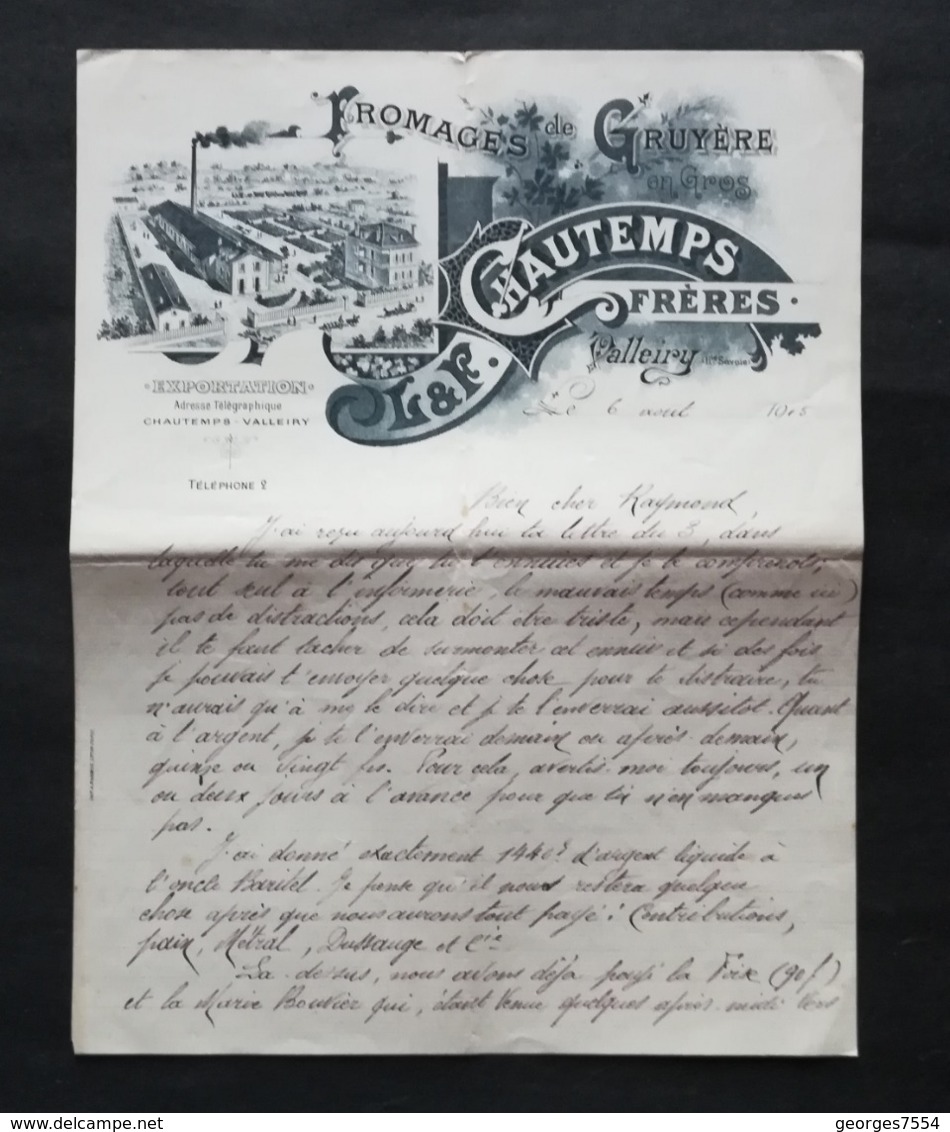 FROMAGES de GRUYÈRE
en Gros
CHAUTEMPS
FRÈRES.
L & F.
Valleiry (Hte Savoie)
EXPORTATION
Adresse Télégraphique
CHAUTEMPS - VALLEIRY
TÉLÉPHONE 2
Le 6 aout 1915
Bien cher Raymond,
J'ai reçu aujourd'hui ta lettre du 3, dans
laquelle tu me dis que tu t'ennuies et je le comprends,
tout seul à l'infirmerie, le mauvais temps (comme ici)
pas de distractions, cela doit être triste, mais cependant
il te faut tacher de surmonter cet ennui et si des fois
je pouvais t'envoyer quelque chose pour te distraire, tu
n'aurais qu'à me le dire et je te l'enverrai aussitot. Quant
à l'argent, je te l'enverrai demain ou après-demain,
quinze ou vingt frs. Pour cela, avertis-moi toujours, un
ou deux jours à l'avance pour que tu n'en manques
pas.
J'ai donné exactement 1440f d'argent liquide à
l'oncle Baritel. Je pense qu'il nous restera quelque
chose après que nous aurons tout payé: Contributions,
pain, Métral, Dussauge et Cie
La-dessus, nous avons déjà payé la Foix (90f)
et la Marie Bouvier qui, étant venue quelques après-midi vers
georges7554
delcampe.net